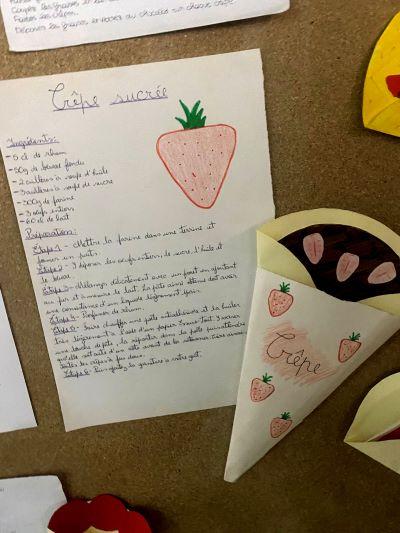 Couper les fraises en
Faites les crêpes.
Déposer les fraises au chocolat sur chaque crêpe
Crêpe sucrée
Ingrédients:
- 5 cl de rhum
- 50g de beurre fondu
- 2 cuillères à soupe d'huile
- 3 cuillères à soupe de sucre
- 300g de farine
- 3 oeufs entiers
- 60 cl de lait
Préparation:
Étape 1 - Mettre la farine dans une terrine et
former un puits.
Étape 2 - Y déposer les oeufs entiers, le sucre, l'huile et
le beurre.
Étape 3 - Mélanger délicatement avec un fouet en ajoutant
au fur et à mesure le lait. La pâte ainsi obtenue doit avoir
une consistance d'un liquide légèrement épais.
Étape 4 - Parfumer de rhum.
Étape 5 - Faire chauffer une poêle antiadhésive et la huiler
très légèrement à l'aide d'un papier Y verser
une louche de pâte, la répartir dans la poêle puis attendre
qu'elle soit cuite d'un côté avant de la retourner. Cuire ainsi
toutes les crêpes à feu doux.
Étape 6 - la garniture à votre goût.
Crêpe